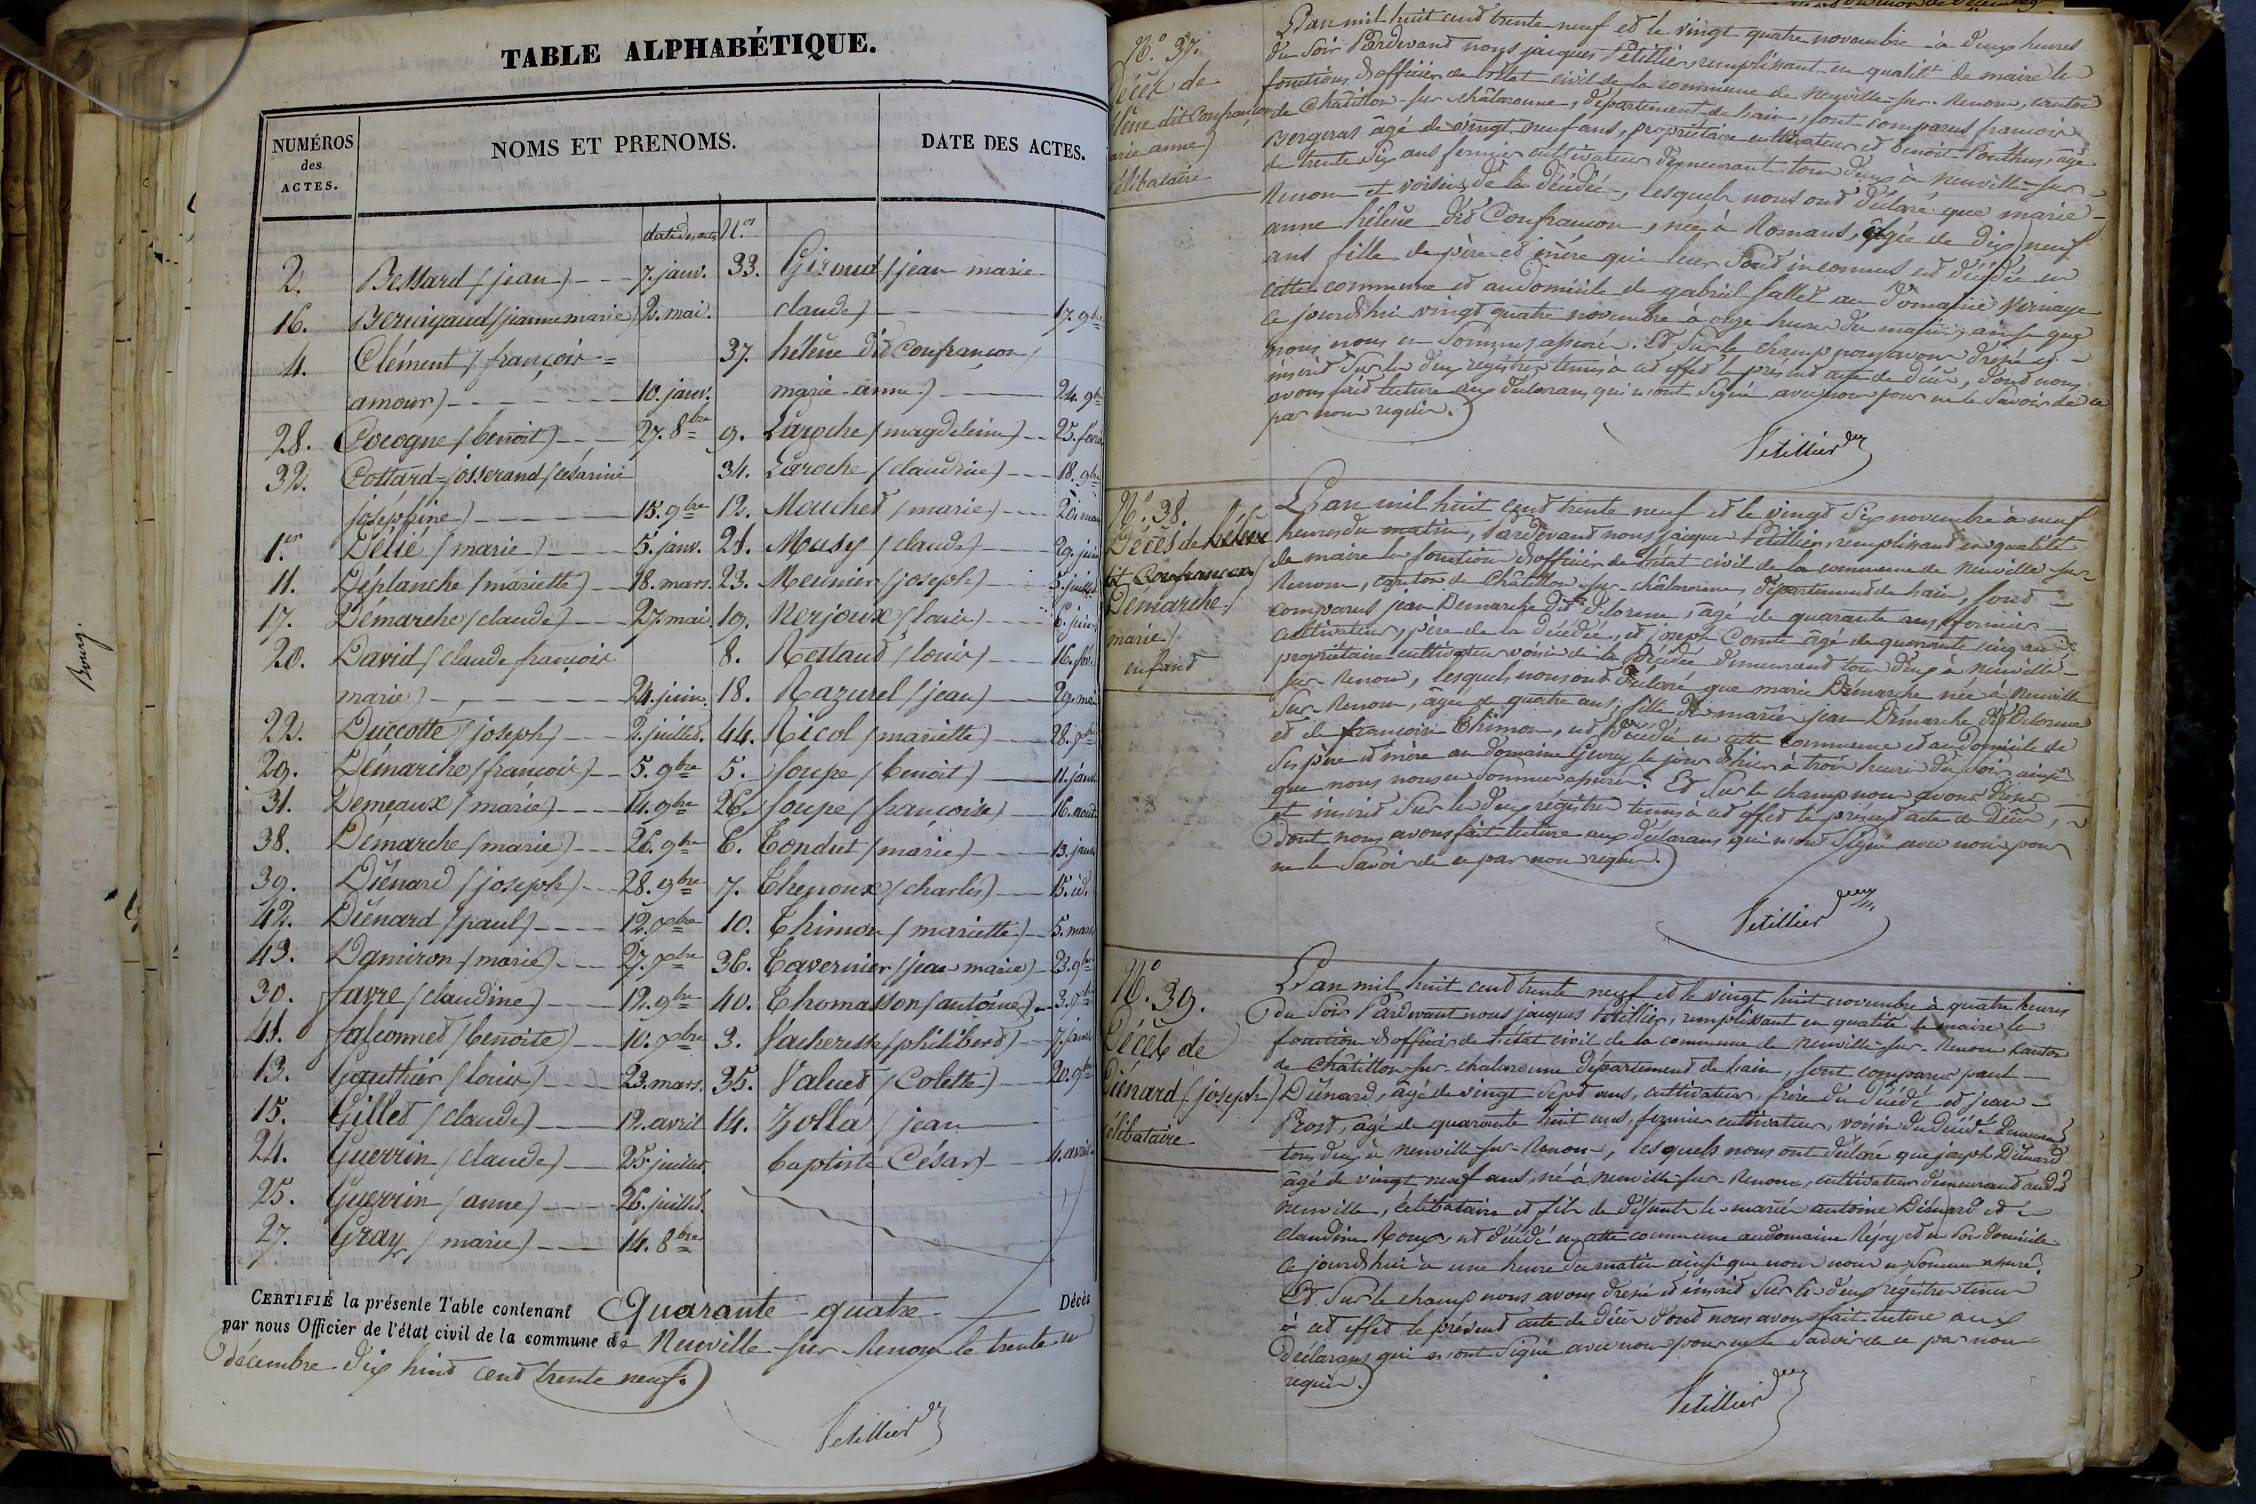 Bourg.
TABLE ALPHABÉTIQUE.
NUMÉROS
des
ACTES.
NOMS ET PRENOMS.
DATE DES ACTES.
date des actes N.os
2. Bessard (jean) 7. janv.
16. Beruigaud (jeanne marie) 2. mai.
4. Clément (françois =
amour) 10. janv.
28. Cocogne (benoit) 27. 8bre
32. Cottard = josserand (césarine
joséphine) 15. 9bre
1er. Délié (marie) 5. janv.
11. Déplanche (mariette) 18. mars.
17. Démarche (claude) 27. mai.
20. David (claude françois
marie) 24. juin.
22. Duccotte (joseph) 2. juillet.
29. Démarche (françois) 5. 9bre
31. Demeaux (marie) 14. 9bre
38. Démarche (marie) 26. 9bre
39. Diénard (joseph) 28. 9bre
42. Diénard (paul) 12. Xbre
43. Damiron (marie) 27. Xbre
30. favre (claudine) 12. 9bre
41. falconnet (benoite) 10. Xbre
13. Gauthier (louis) 23. mars.
15. Gillet (claude) 12. avril
24. Guerrin (claude) 25. juillet.
25. Guerrin (anne) 26. juillet.
27. Gray (marie) 14. 8bre
33. Giroud (jean marie
claude) 17. 9bre
37. héléne dit Confrançon (
marie-anne) 24. 9bre
9. Laroche (magdeleine) 25. févri
34. Laroche (claudine) 18. 9bre
12. Mouchet (marie) 20. mars
21. Musy (claude) 29. juin
23. Meunier (joseph) 5. juillet
19. Nerjoux (louis) 6. juin
8. Restaud (louis) 16. fév
18. Razurel (jean) 29. mai
44. Ricol (mariette) 28. Xbre
5. Soupe (benoit) 11. janv
26. Soupe (françoise) 16. août
6. Tondut (marie) 13. janv
7. Thenoux (charles) 15. id.
10. Thimon (mariette) 5. mars
36. Tavernier (jean marie) 23. 9bre
40. Thomasson (antoine) 3. Xbre
3. Vacheresse (philibert) 7. janv
35. Valuet (Colette) 20. 9bre
14. Zolla (jean
baptiste César) 4. avril
CERTIFIÉ la présente Table contenant Quarante-quatre Décès
par nous Officier de l'état civil de la commune de Neuville-sur-Renom le trente-un
décembre dix huit cent trente neuf.
Petillier
N.o 37.
Décès de
héléne dit Confrançon
marie anne)
célibataire
L'an mil huit cent trente-neuf et le vingt quatre novembre à deux heures
du soir Pardevant nous jacques Petillier, remplissant en qualité de maire les
fonctions d'officier de l'état civil de la commune de Neuville-sur-Renom, canton
de Châtillon-sur-châlaronne, département de l'ain, sont comparus françois
Bergeras âgé de vingt neuf ans, propriétaire cultivateur et benoit Ponthus, âgé
de trente six ans fermier cultivateur demeurant tous deux à Neuville-sur-
Renom et voisins de la décédée, lesquels nous ont déclaré que marie-
anne héléne dit Confrançon, née à Romans, âgée de dix neuf
ans fille de père et mère qui leur sont inconnus est décédée en
cette commune et au domicile de gabriel fallet au domaine Vernaye
ce jourd'hui vingt quatre novembre à onze heures du matin, ainsi que
nous nous en sommes assuré. Et sur le champ nous avons dressé et
inscrit sur les deux régistres tenus à cet effet le présent acte de décès, dont nous
avons fait lecture aux déclarans qui n'ont signé avec nous pour ne le savoir de ce
par nous requis.
Petillier
N.o 38.
Décès de héléne
dit Confrançon
Demarche (
marie)
enfant
L'an mil huit cent trente neuf et le vingt six novembre à neuf
heures du matin, Pardevant nous jacques Petillier, remplissant en qualité
de maire les fonctions d'officier de l'état civil de la commune de Neuville-sur-
Renom, canton de Châtillon-sur-châlaronne, département de l'ain, sont
comparus jean Demarche dit Delorme, âgé de quarante ans, fermier
cultivateur, père de la décédée, et joseph Comte âgé de quarante cinq ans
propriétaire cultivateur voisin de la décédée demeurant tous deux à Neuville-
sur-Renom, lesquels nous ont déclaré que marie Démarche née à Neuville
sur-Renom, âgée de quatre ans, fille de mariés jean Démarche dit Delorme
et de françoise Thimon, est décédée en cette commune et au domicile de
ses père et mère au domaine Guvry le jour d'hier à trois heures du soir, ainsi
que nous nous en sommes assuré. Et sur le champ nous avons dressé
et inscrit sur les deux régistres tenus à cet effet le présent acte de décès,
dont nous avons fait lecture aux déclarans qui n'ont signé avec nous pour
ne le savoir de ce par nous requis.
Petillier
N.o 39.
Décès de
Diénard (joseph)
célibataire
L'an mil huit cent trente neuf et le vingt huit novembre à quatre heures
du soir Pardevant nous jacques Petillier, remplissant en qualité de maire les
fonctions d'officier de l'état civil de la commune de Neuville-sur-Renom canton
de Châtillon-sur-chalaronne département de l'ain, sont comparus paul
Diénard, âgé de vingt sept ans, cultivateur, frère du décédé et jean
Prost, âgé de quarante huit ans, fermier cultivateur, voisin du décédé demeurant
tous deux à Neuville-sur-Renom, lesquels nous ont déclaré que joseph Diénard
âgé de vingt neuf ans, né à Neuville-sur-Renom, cultivateur demeurant audit
Neuville, célibataire et fils de défunts les mariés antoine Diénard et
claudine Roux, est décédé en cette commune au domaine Réjoy et en son domicile
ce jourd'hui à une heure du matin ainsi que nous nous en sommes assuré.
Et sur le champ nous avons dressé et inscrit sur les deux régistres tenus
à cet effet le présent acte de décès dont nous avons fait lecture aux
déclarans qui n'ont signé avec nous pour ne le savoir de ce par nous
requis.
Petillier